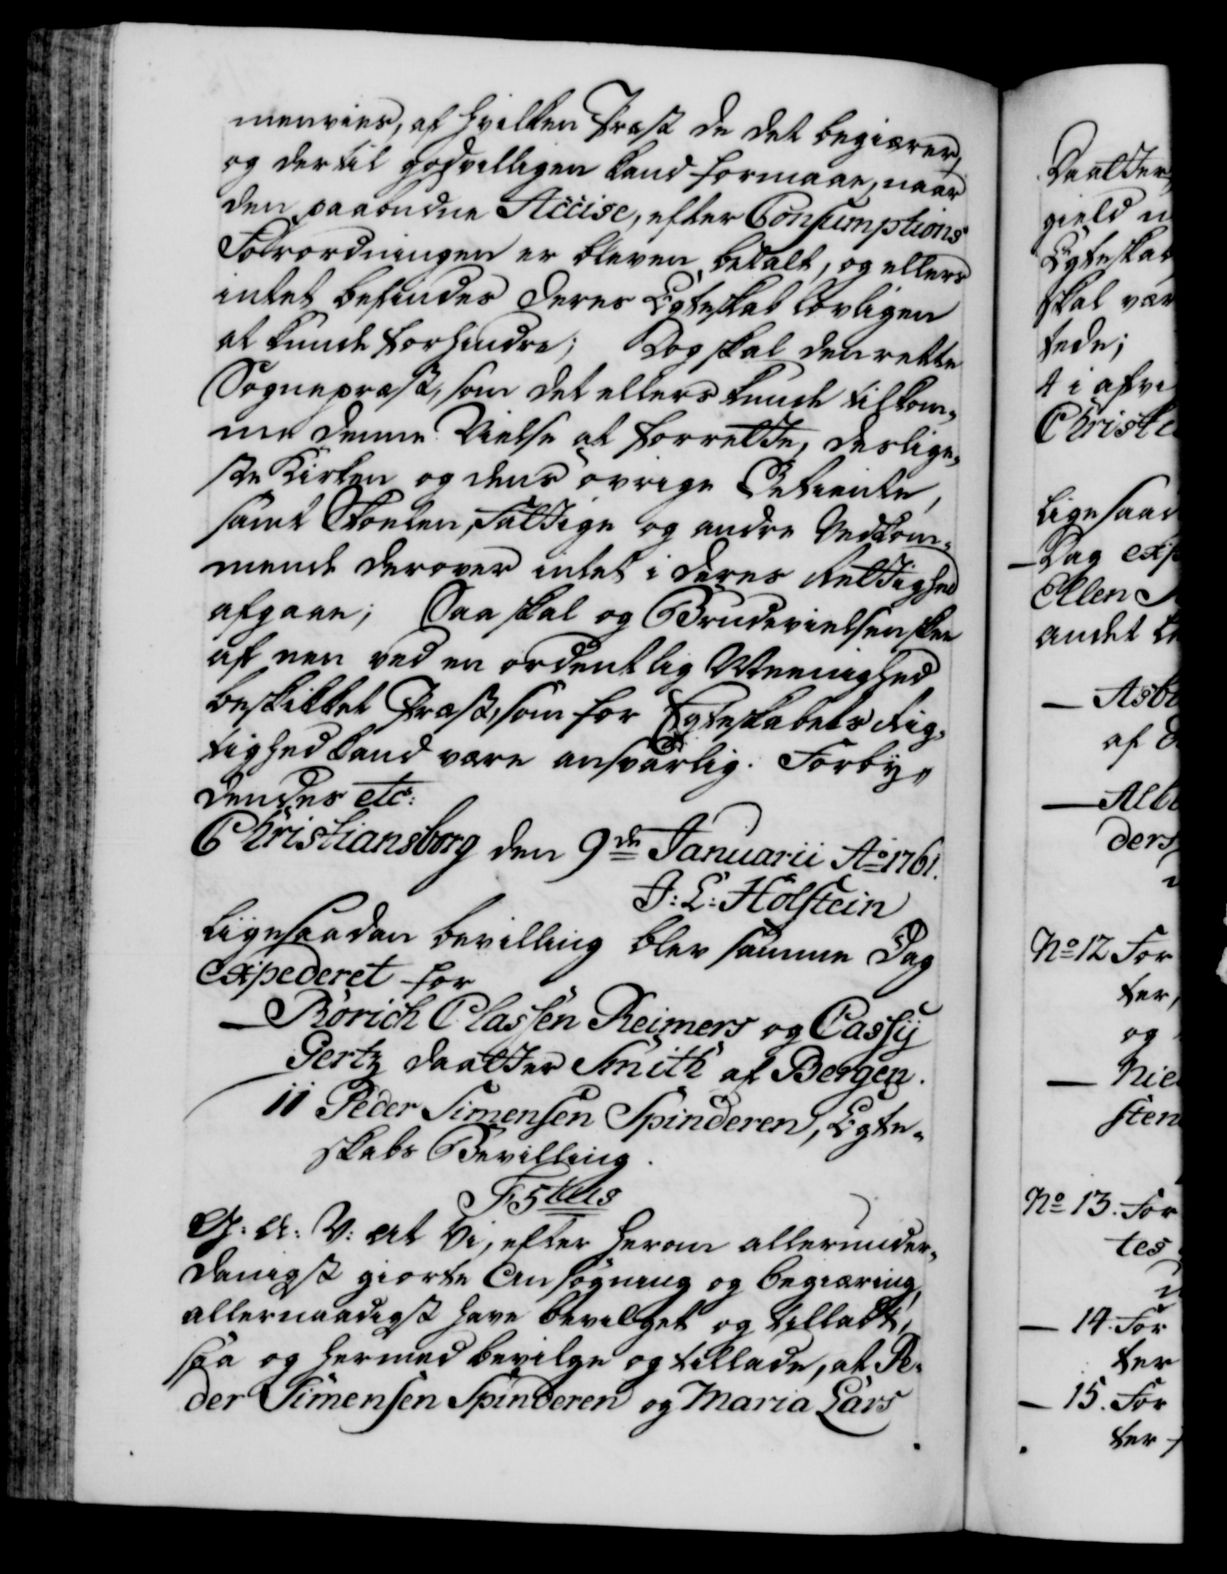 menvies, af hvilken Præst de det begiærer,
og dertil godvilligen kand formaae, naar
den paabudne Accise, efter Consumptions
Forordningen er bleven betalt, og ellers
intet befindes deres Egteskab lovligen
at kunde forhindre; Dog skal den rette
Sognepræst, som det ellers kunde tilkom-
me denne Vielse at forrette, deslige-
ste Kirken og dens øvrige Betiente,
samt Skolen, Fattige og andre Vedkom-
mende derover intet i deres Rettighed
afgaae; Saa skal og Brudevielsen skee
af een ved en ordentlig Meenighed
beskikket Præst, som for Egteskabets Rig-
tighed kand være ansvarlig. Forby-
dendes etc:
Christiansborg den 9de Januarii Ao 1761.
J: L: Holstein
Ligesaadan bevilling blev samme Dag
expederet for
— Rörich Classen Reimers og Cassÿ
Gertz Daatter Smith af Bergen.
11 Peder Simensen Spinderen, Egte-
skabs Bevilling.
F 5tus
G: A: V: at Vi, efter herom allerunder-
danigst giorte Ansøgning og begiæring,
allernaadigst have bevilget og tilladt,
saa og hermed bevilge og tillade, at Pe-
der Simensen Spinderen og Maria Lars
Daatter
gield
Egteskab
skal vær
stede;
Christi
ligesaad
— Dag exp
Ellen
andet
— Asb
af
— Alb
ders
No 12 For
ter,
og
— Nie
sten
No 13. For
tes
— 14. For
ter
— 15. For
ter